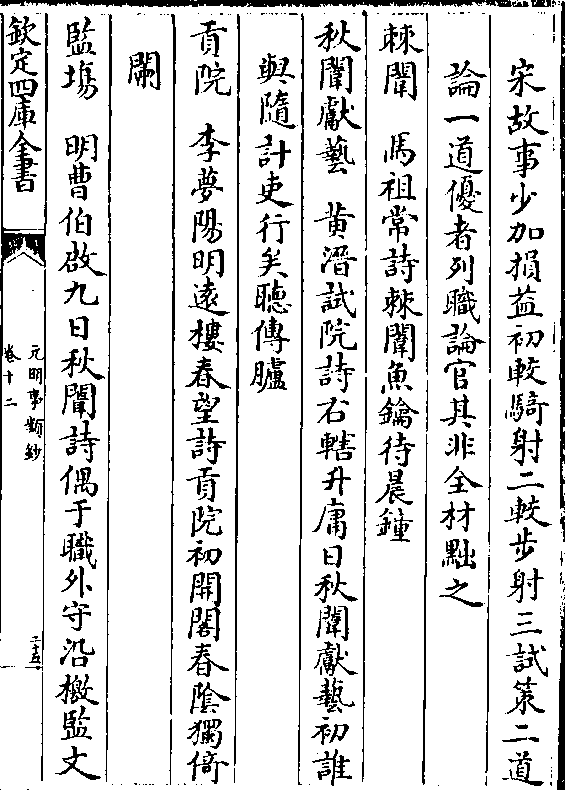 宋故事少加損益初較騎射二較步射三試策二道
論一道優者列職論官其非全材黜之
棘闈　馬祖常詩棘闈魚鑰待晨鐘
秋闈獻藝　黄溍試院詩右轄升庸日秋闈獻藝初誰
與隨計吏行矣聽傳臚
貢院　李夢陽明遠樓春望詩貢院初開閣春陰獨倚
闌
監塲　明曹伯啟九日秋闈詩偶于職外守沿檄監文
欽定四庫全書
元明事類鈔
卷十二
二十五